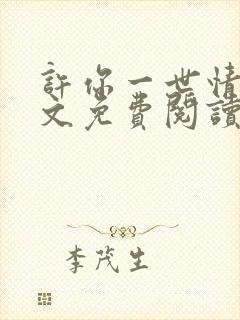 許你一世情
文免費閱讀
李茂生